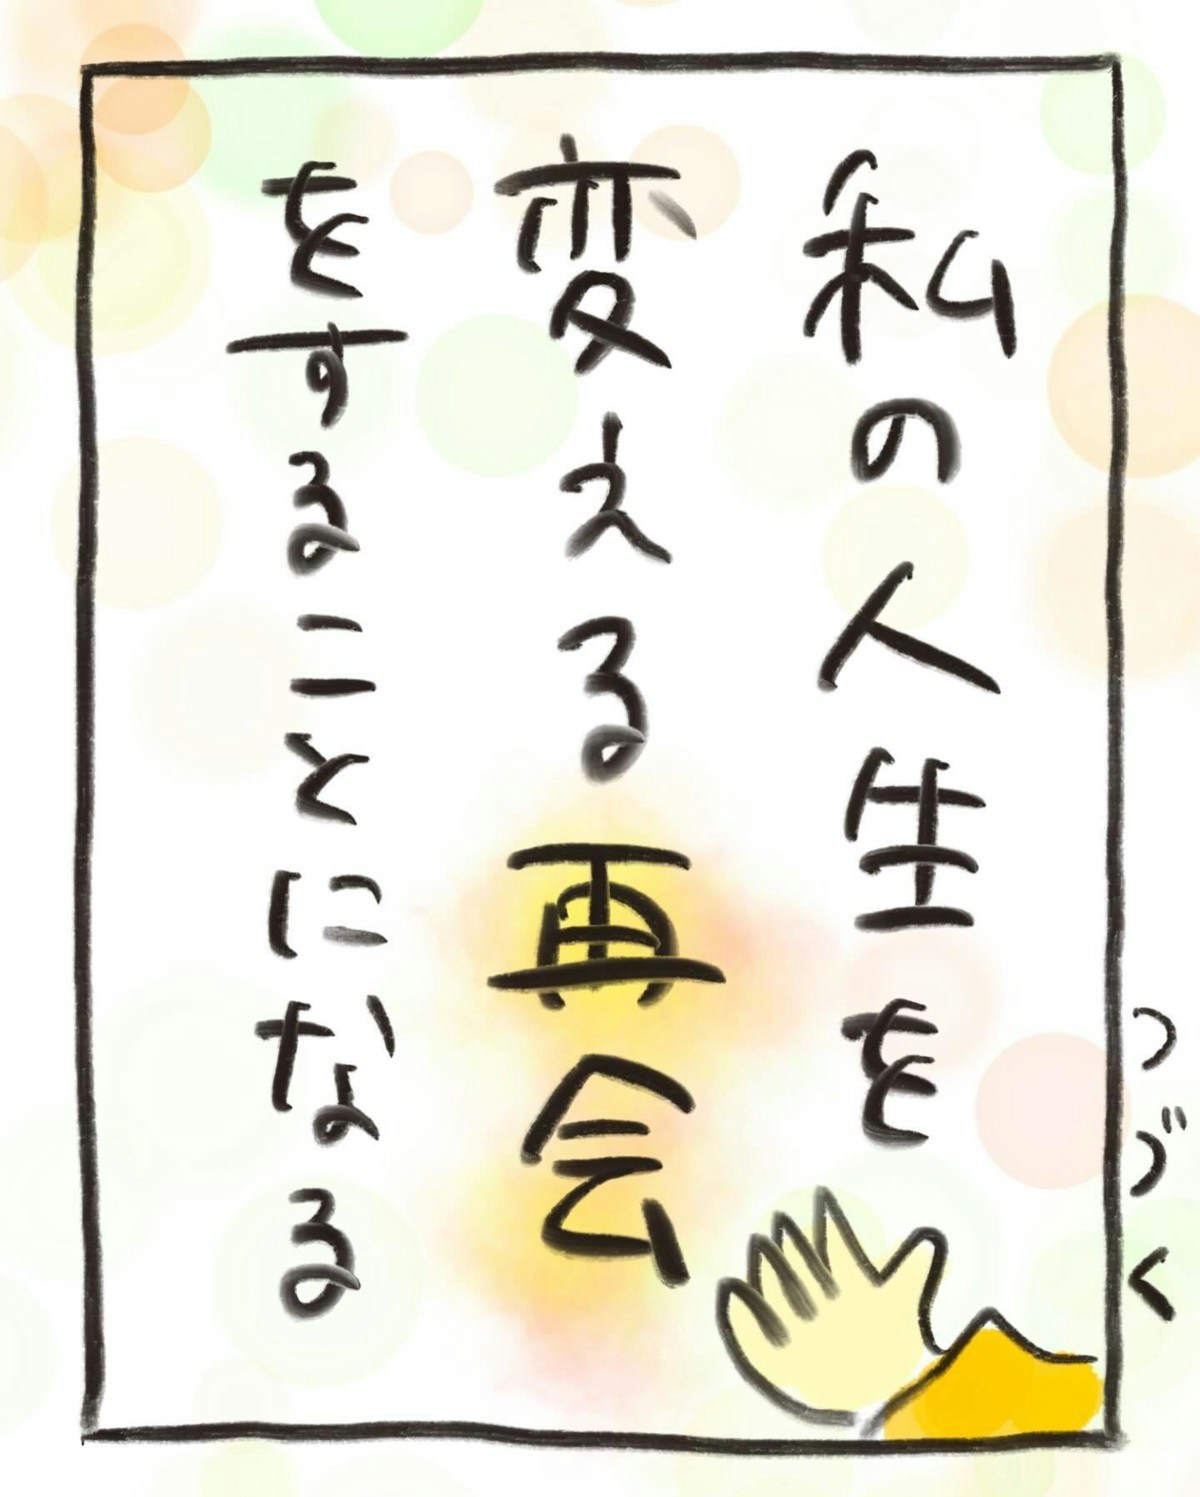 私の人生を
変える再会
をすることになる
つづく